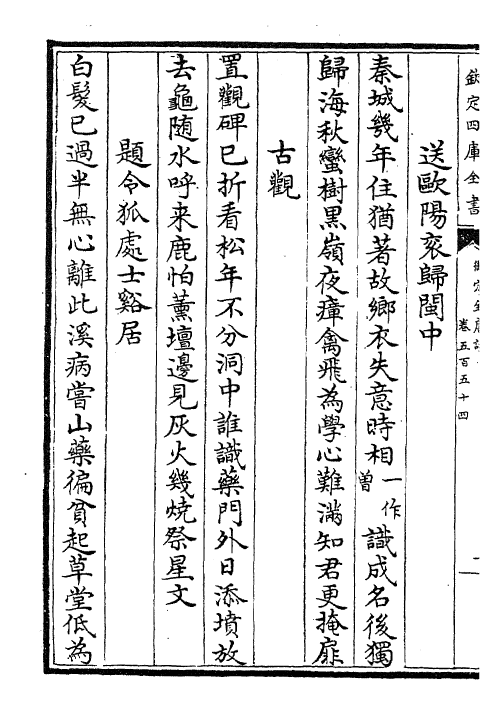 欽定四庫全書
御定全唐詩
卷五百五十四
送歐陽衮歸閩中
秦城幾年住猶著故鄉衣失意時相一作曽識成名後獨
歸海秋蠻樹黑嶺夜瘴禽飛為學心難滿知君更掩扉
古觀
置觀碑已折看松年不分洞中誰識藥門外日添墳放
去龜随水呼来鹿怕薰壇邊見灰火幾燒祭星文
題令狐處士谿居
白髮已過半無心離此溪病嘗山藥徧貧起草堂低為